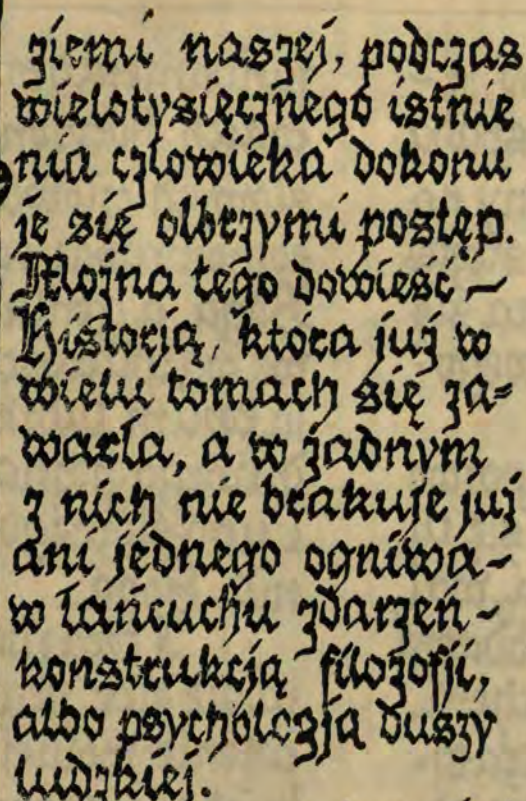 ziemi naszej, podczas
wielotysięcznego istnie
nia człowieka dokonu
je się olbrzymi postęp.
Można tego dowieść –
Historją, która już w
wielu tomach się za=
warła, a w żadnym
z nich nie brakuje już
ani jednego ogniwa –
w łańcuchu zdarzeń –
konstrukcją filozofji,
albo psychologją duszy
ludzkiej.